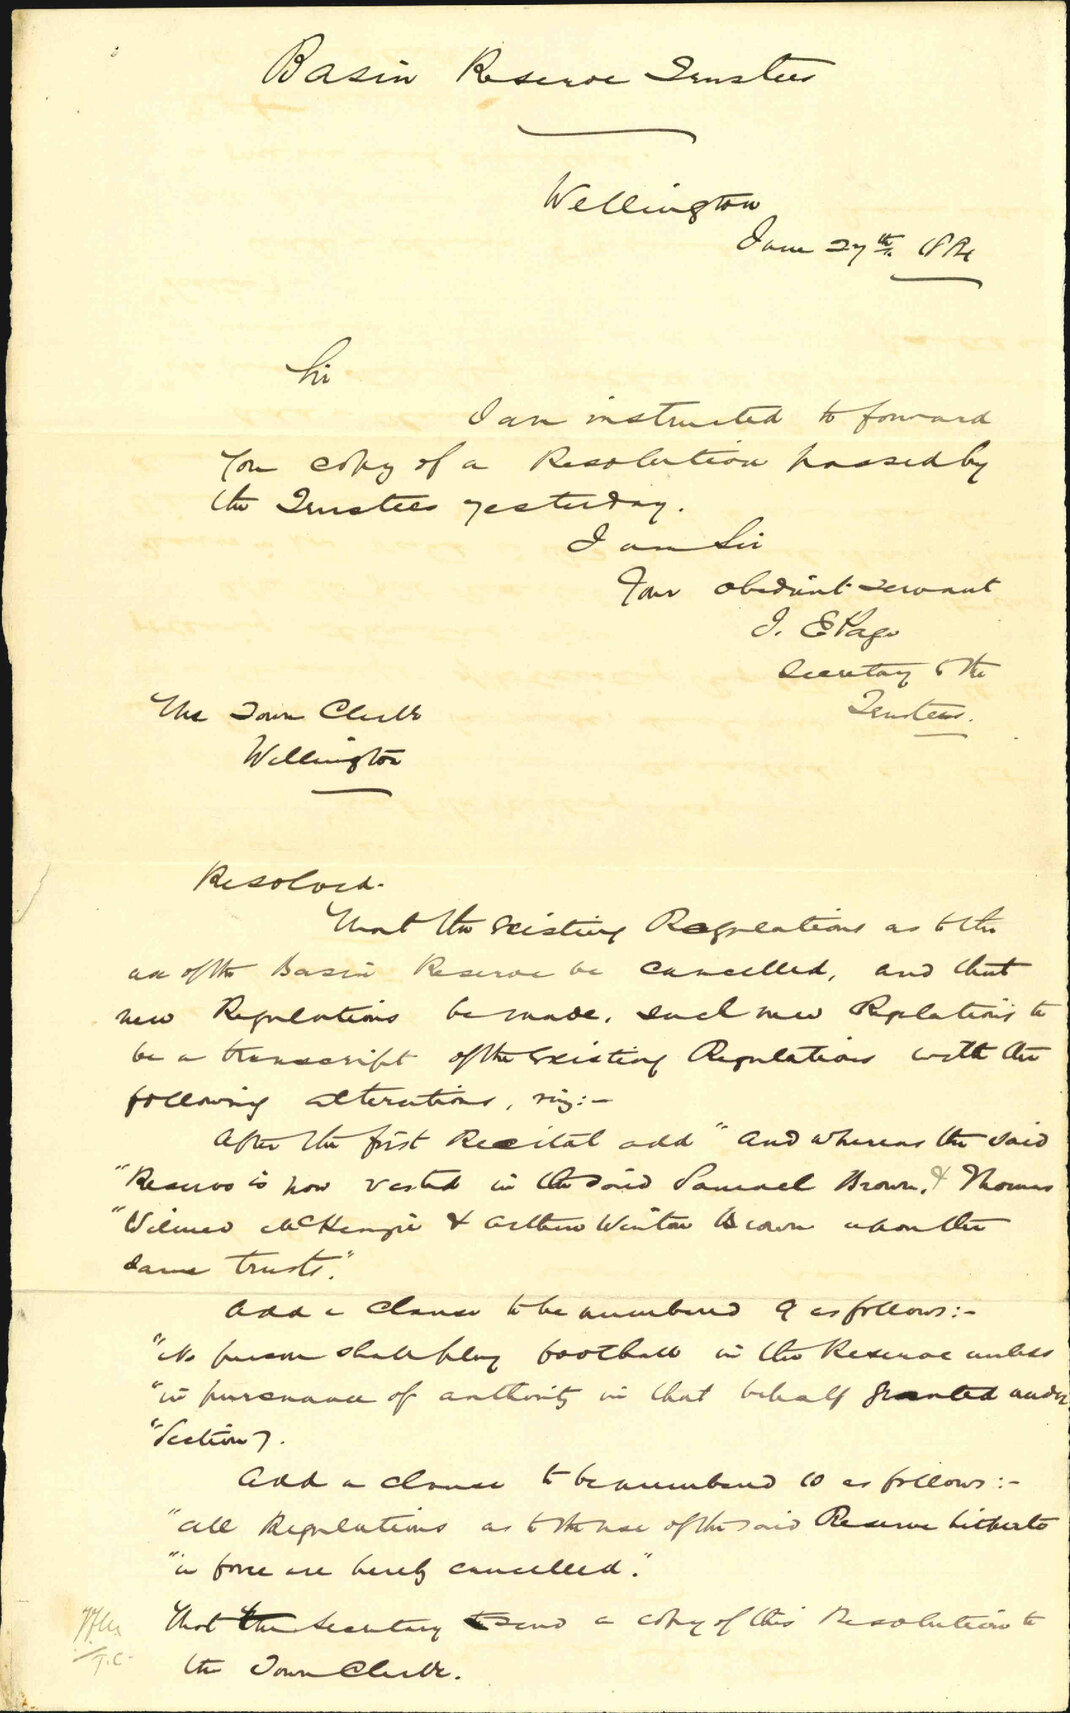 Basin Reserve Trustees
Wellington
June 27th.
Sir
I am instructed to forward
you copy of a Resolution passed by
the Trustees yesterday.
I am Sir
Your obedient servant
J. E Page
Secretary to the
Trustees.
The Town Clerk
Wellington
Resolved.
That the existing Regulations as to the
use of the Basin Reserve be cancelled, and that
new Regulations be made. such new Regulations to
be a transcript of the existing Regulations with the
following alterations, viz:-
After the first Recital add "And whereas the said
"Reserve is now vested in the said Samuel Brown, & Thomas
"Wilmer McKenzie & Arthur Winton Brown upon the
same trusts."
Add a clause to be numbered 9 as follows:-
"No person shall play football in the Reserve unless
"in pursuance of authority in that behalf granted under
"Section 7.
Add a clause to be numbered 10 as follows:-
"All Regulations as to the use of the said Reserve hitherto
"in force are hereby cancelled."
That the Secretary to send a copy of this Resolution to
the Town Clerk.
T.C.